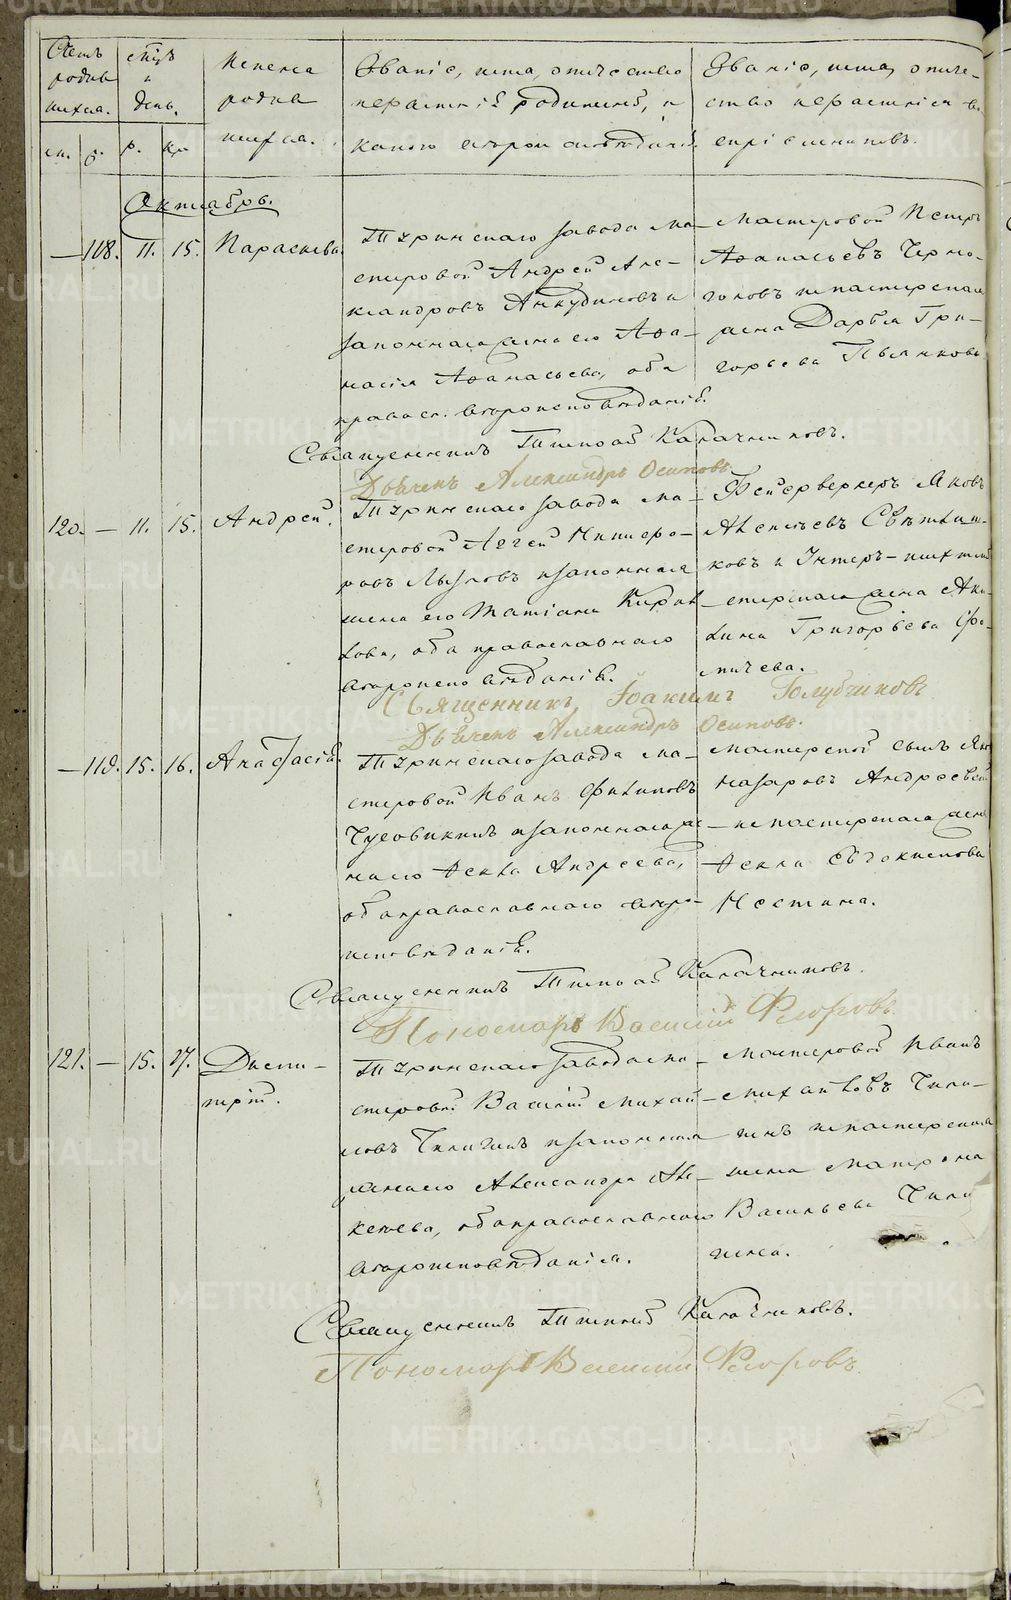 Счетъ родив шихся.
Мѣсяцъ и день.
Имена родив шихся.
Званіе, имя, отчество
и фамилія родителей, и
какого вѣроисповѣданія.
Званіе, имя, отче-
ство и фамилія во-
спріемниковъ.
м. ж. р. кр.
Октябрь.
—118. 11. 15. Параскева.
Туринскаго завода ма-
стеровой Андрей Але-
ксандровъ Анкудиновъ и
законная жена его Афа-
насія Афанасьева, оба
правосл. вѣроисповѣданія.
Мастеровой Петръ
Афанасьевъ Черно-
головъ и мастерская
жена Дарья Гри-
горьева Пьянкова
Священникъ Тимофей Калачниковъ.
Дьяченъ Александръ Осиповъ
120. — 11. 15. Андрей.
Туринскаго завода ма-
стеровой Никифо-
ровъ Лызловъ и законная
жена его Татіана Кирил
лова, оба православнаго
вѣроисповѣданія.
Фейерверкеръ Яковъ
Алексѣевъ Свѣтлич-
ковъ и Унтеръ-шихтмей
стерская жена Аку-
лина Григорьева Фо-
мичева.
Священникъ Іоакимъ Голубчиковъ
Дьяченъ Александръ Осиповъ.
—119. 15. 16. Анастасія.
Туринскаго завода ма-
стеровой Иванъ Филиповъ
Чусовикинъ и законная же-
на его Фекла Андреева,
оба православнаго вѣро-
исповѣданія.
Мастерской сынъ
Назаровъ Андреевъ
и мастерская жена
Фекла Евдокимова
Священникъ Тимофей Калачниковъ.
Пономарь Василій Федоровъ
121. — 15. 27. Дими-
трій.
Туринскаго завода ма-
стеровой Василій Михай-
ловъ Чипигинъ и законная
жена его Александра Але-
ксѣева, оба православнаго
вѣроисповѣданія.
Мастеровой Иванъ
Михайловъ Чипи-
гинъ и мастерская
жена Матрона
Васильева Чипи
гина.
Священникъ Тимофей Калачниковъ.
Пономарь Василій Федоровъ
METRIKI.GASO-URAL.RU